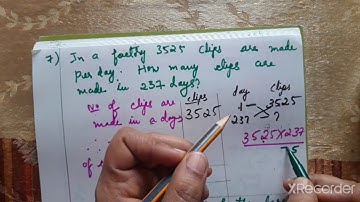 7) In a factory 3525 clips are made
Per day. How many clips are
made in 237 days?
No of clips are
made in a day
clips
3525
day clips
1 3525
237 ?
3525 X 237
75
XRecorder